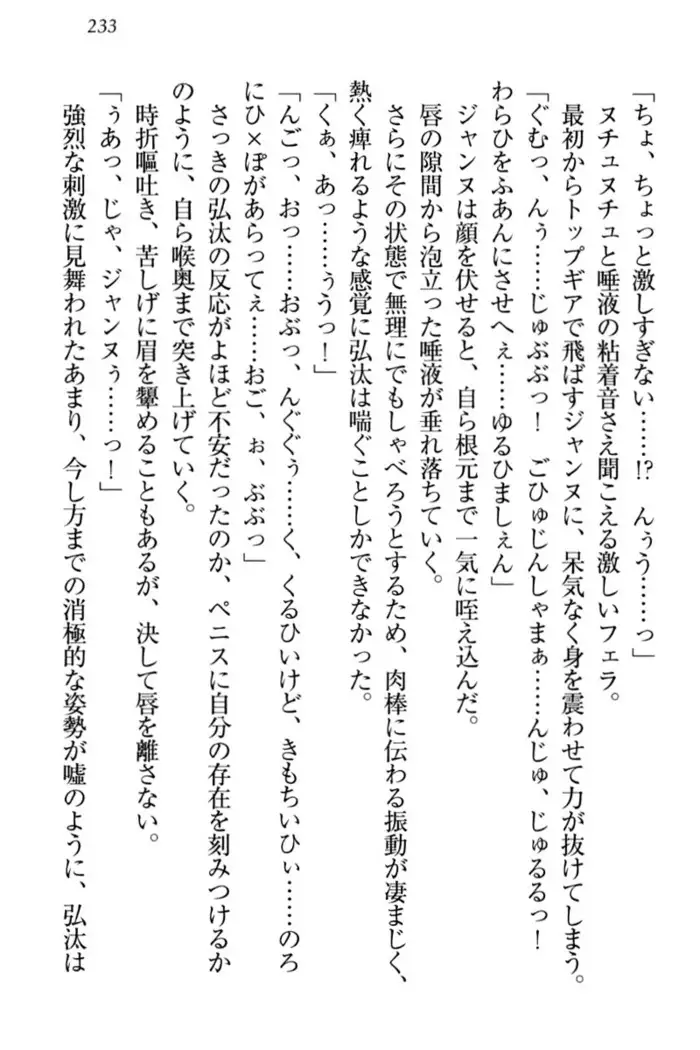 233
「ちょ、ちょっと激しすぎない……!?　んぅう……っ」
ヌチュヌチュと唾液の粘着音さえ聞こえる激しいフェラ。
最初からトップギアで飛ばすジャンヌに、呆気なく身を震わせて力が抜けてしまう。
「ぐむっ、んぅ……じゅぶぶっ！　ごひゅじんしゃまぁ……んじゅ、じゅるるっ！
わらひをふあんにさせへぇ……ゆるひましぇん」
ジャンヌは顔を伏せると、自ら根元まで一気に咥え込んだ。
唇の隙間から泡立った唾液が垂れ落ちていく。
さらにその状態で無理にでもしゃべろうとするため、肉棒に伝わる振動が凄まじく、
熱く痺れるような感覚に弘汰は喘ぐことしかできなかった。
「くぁ、あっ……ぅうっ！」
「んごっ、おっ……おぶっ、んぐぐぅ……く、くるひいけど、きもちいひぃ……のろ
にひ×ぽがあらってぇ……おご、ぉ、ぶぶっ」
さっきの弘汰の反応がよほど不安だったのか、ペニスに自分の存在を刻みつけるか
のように、自ら喉奥まで突き上げていく。
時折嘔吐き、苦しげに眉を顰めることもあるが、決して唇を離さない。
「ぅあっ、じゃ、ジャンヌぅ……っ！」
強烈な刺激に見舞われたあまり、今し方までの消極的な姿勢が嘘のように、弘汰は